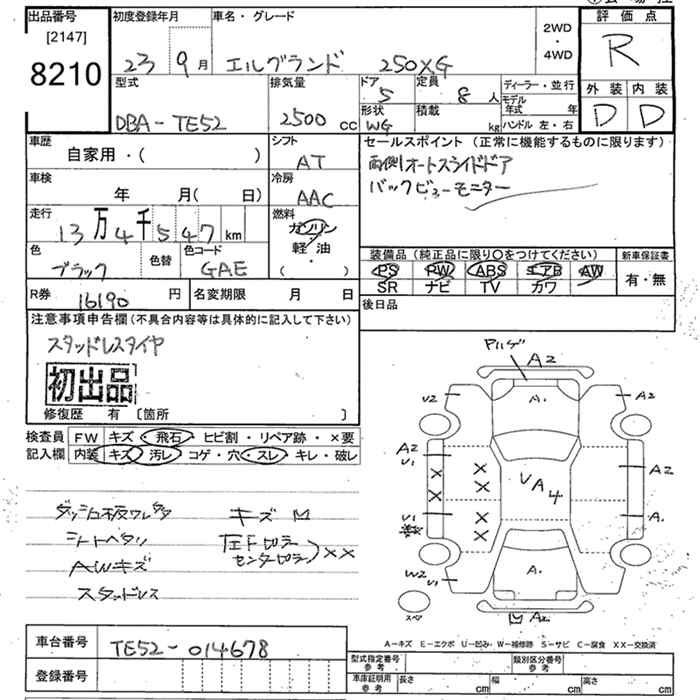 出品番号
[2147]
8210
初度登録年月
23 9月
車名・グレード
エルグランド 250XG
2WD
・
4WD
評価点
R
外装 内装
D D
型式
DBA-TE52
排気量
2500 cc
ドア
5
定員
8 人
形状
WG
積載
kg
ディーラー・並行
モデル年式 年
ハンドル 左・右
車歴
自家用・( )
シフト
AT
セールスポイント (正常に機能するものに限ります)
両側オートスライドドア
バックビューモニター
車検
年 月( 日)
冷房
AAC
走行
13万4千547km
燃料
ガソリン
軽・油
( )
色
ブラック
色替
色コード
GAE
装備品 (純正品に限り○をつけてください)
PS PW ABS エアB AW
SR ナビ TV カワ
新車保証書
有・無
R券 16190 円
名変期限 月 日
後日品
注意事項申告欄(不具合内容等は具体的に記入して下さい)
スタッドレスタイヤ
初出品
修復歴 有 〔箇所 〕
検査員 FW キズ・飛石・ヒビ割・リペア跡・×要
記入欄 内装 キズ・汚レ・コゲ・穴・スレ・キレ・破レ
ダッシュ板ワレ
シートヘタリ
AWキズ
スタッドレス
キズ 凹
左Fピラー
センターピラー ) ××
A2
A.
U2
A2
A2
U1
A2
U A 4
U1
A.
W2
U1
A.
スペア
凹 A2
A-キズ E-エクボ U-凹み W-補修跡 S-サビ C-腐食 XX-交換済
車台番号 TE52-014678
登録番号
型式指定番号 参考
類別区分番号 参考
車庫証明用 参考
長さ cm
幅 cm
高さ cm